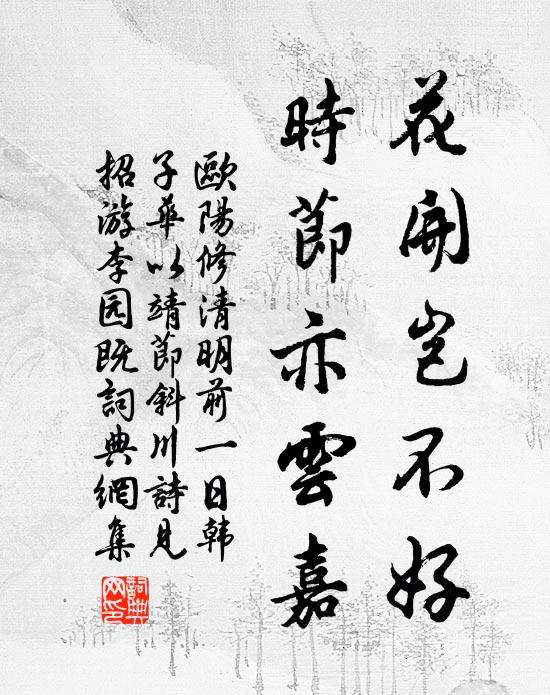 花開岂不好
時節亦雲嘉
歐陽修清明前一日韩
子華以靖節斜川詩見
招游李园既詞典網集